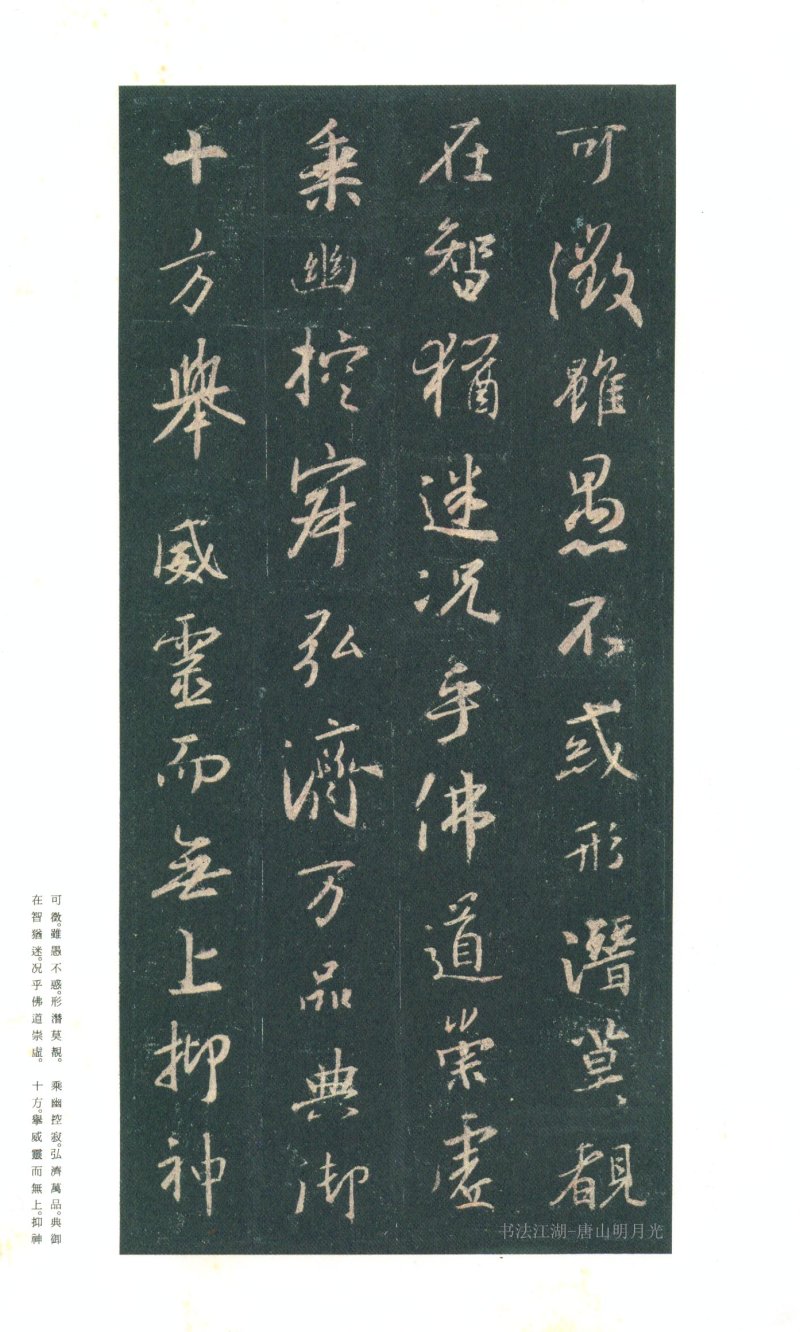 可徵雖愚不惑形潛莫覩
在智猶迷况乎佛道崇虛
乘幽控寂弘濟万品典御
十方舉威靈而無上抑神
可徵。雖愚不惑。形潛莫覩。
在智猶迷。况乎佛道崇虛。
乘幽控寂。弘濟萬品。典御
十方。擧威靈而無上。抑神
书法江湖-唐山明月光